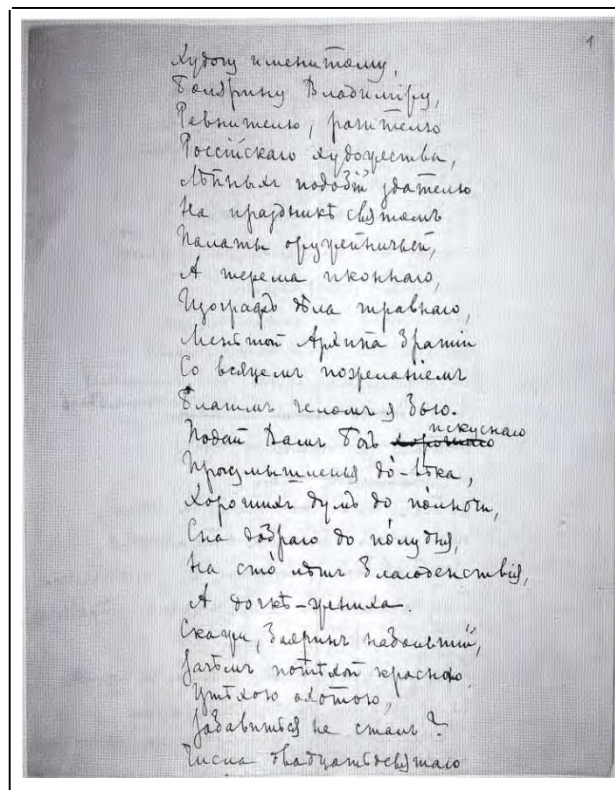 1
Худогу именитому,
Болярину Владимiру,
Ревнителю, рачителю
Россiйскаго художества,
Лѣпныхъ подобiй здателю
На праздникѣ святомъ
Палаты оружейничьей,
А терема иконнаго,
Изографъ дѣла травнаго,
Меньшой братiи
Со всяцемъ пожеланiемъ
Благимъ челомъ я бью.
искуснаго
Подай Вамъ Богъ хорошаго
до-вѣка,
Хорошихъ думъ до по́лночи,
Сна добраго до по́лудня,
На сто̀ лѣтъ благоденствiя,
А дочкѣ-жениха.
Скажи, бояринъ набольшiй,
Зачѣмъ потѣхой красною,
Утѣхою охотою,
Забавиться не сталъ?
Числа двадцатьдевятаго